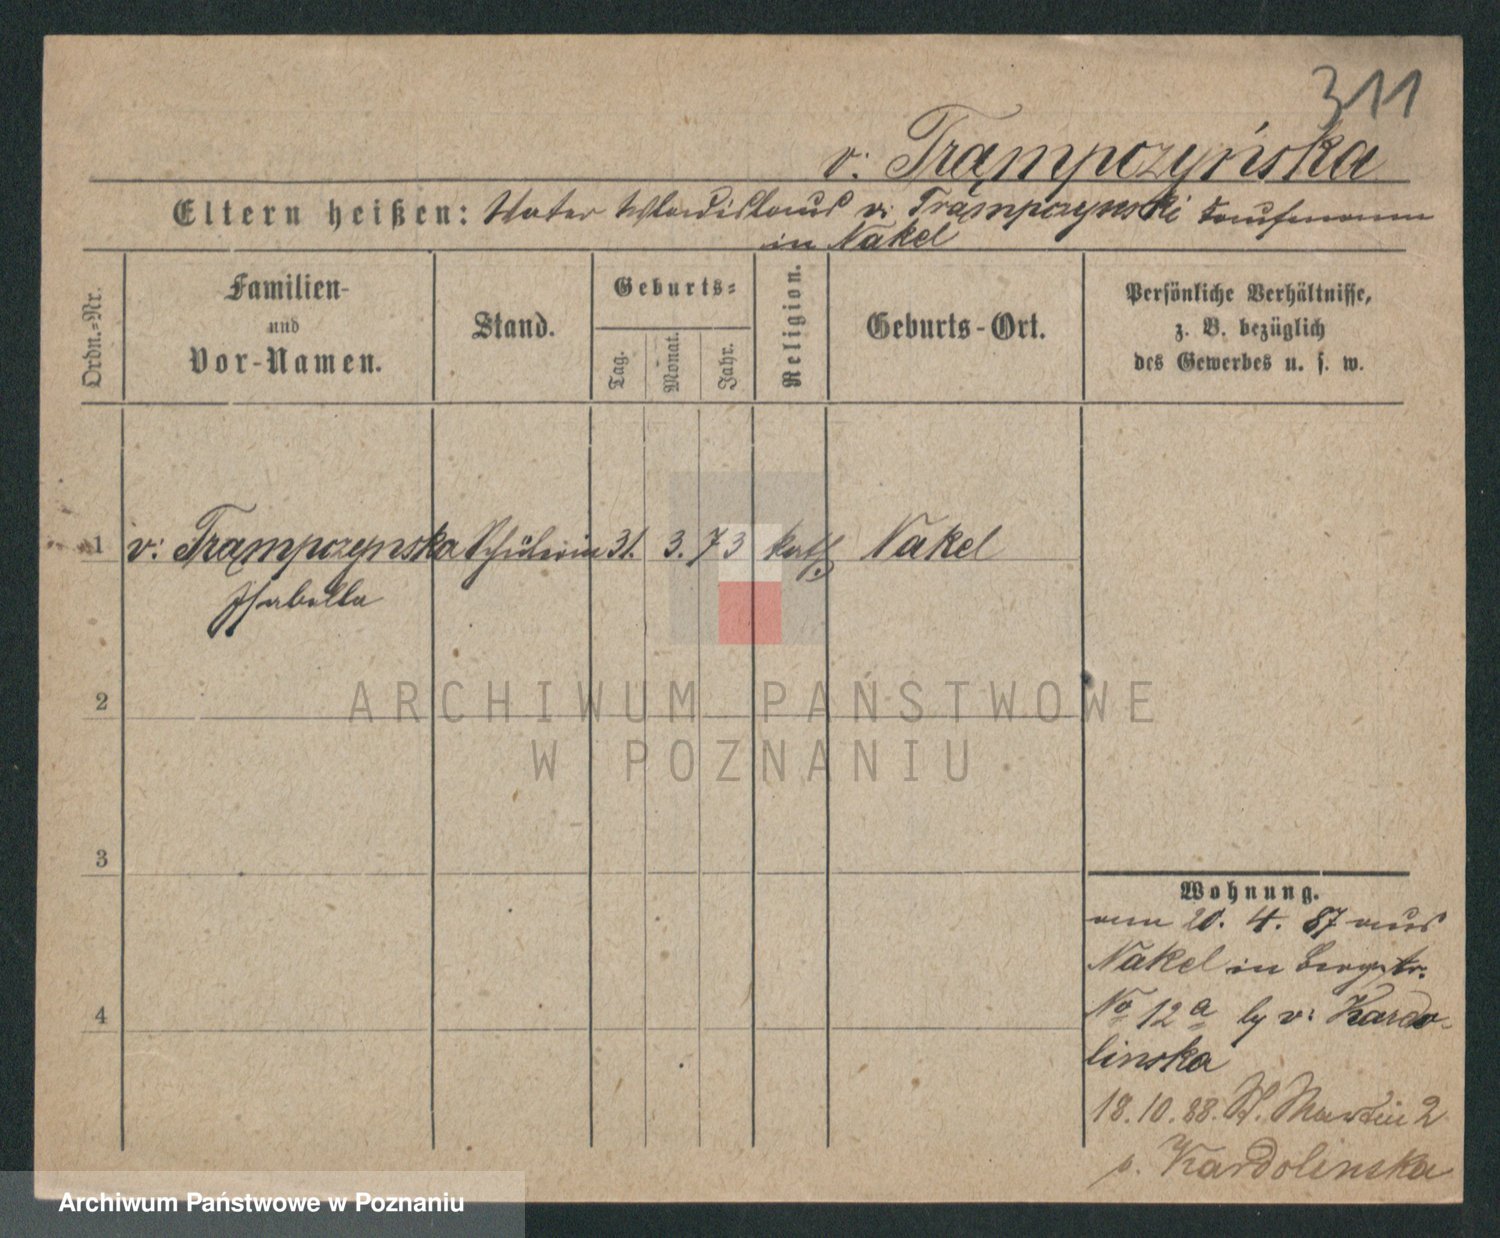 311
v. Trąmpczyńska
Eltern heißen: Vater Wladislaus v. Trąmpczynski Kaufmann
in Nakel
Ordn.-Nr.
Familien-
und
Vor-Namen.
Stand.
Geburts-
Tag.
Monat.
Jahr.
Religion.
Geburts-Ort.
Persönliche Verhältnisse,
z. B. bezüglich
des Gewerbes u. s. w.
1 v. Trąmpczynska Schülerin 31. 3. 73 kath. Nakel
Isabella
2
3
4
Wohnung.
am 20. 4. 87 aus
Nakel in Bergstr.
No 12a by v. Kardo-
linska
18.10.88. St. Martin 2
v. Kardolinska
ARCHIWUM PAŃSTWOWE
W POZNANIU
Archiwum Państwowe w Poznaniu